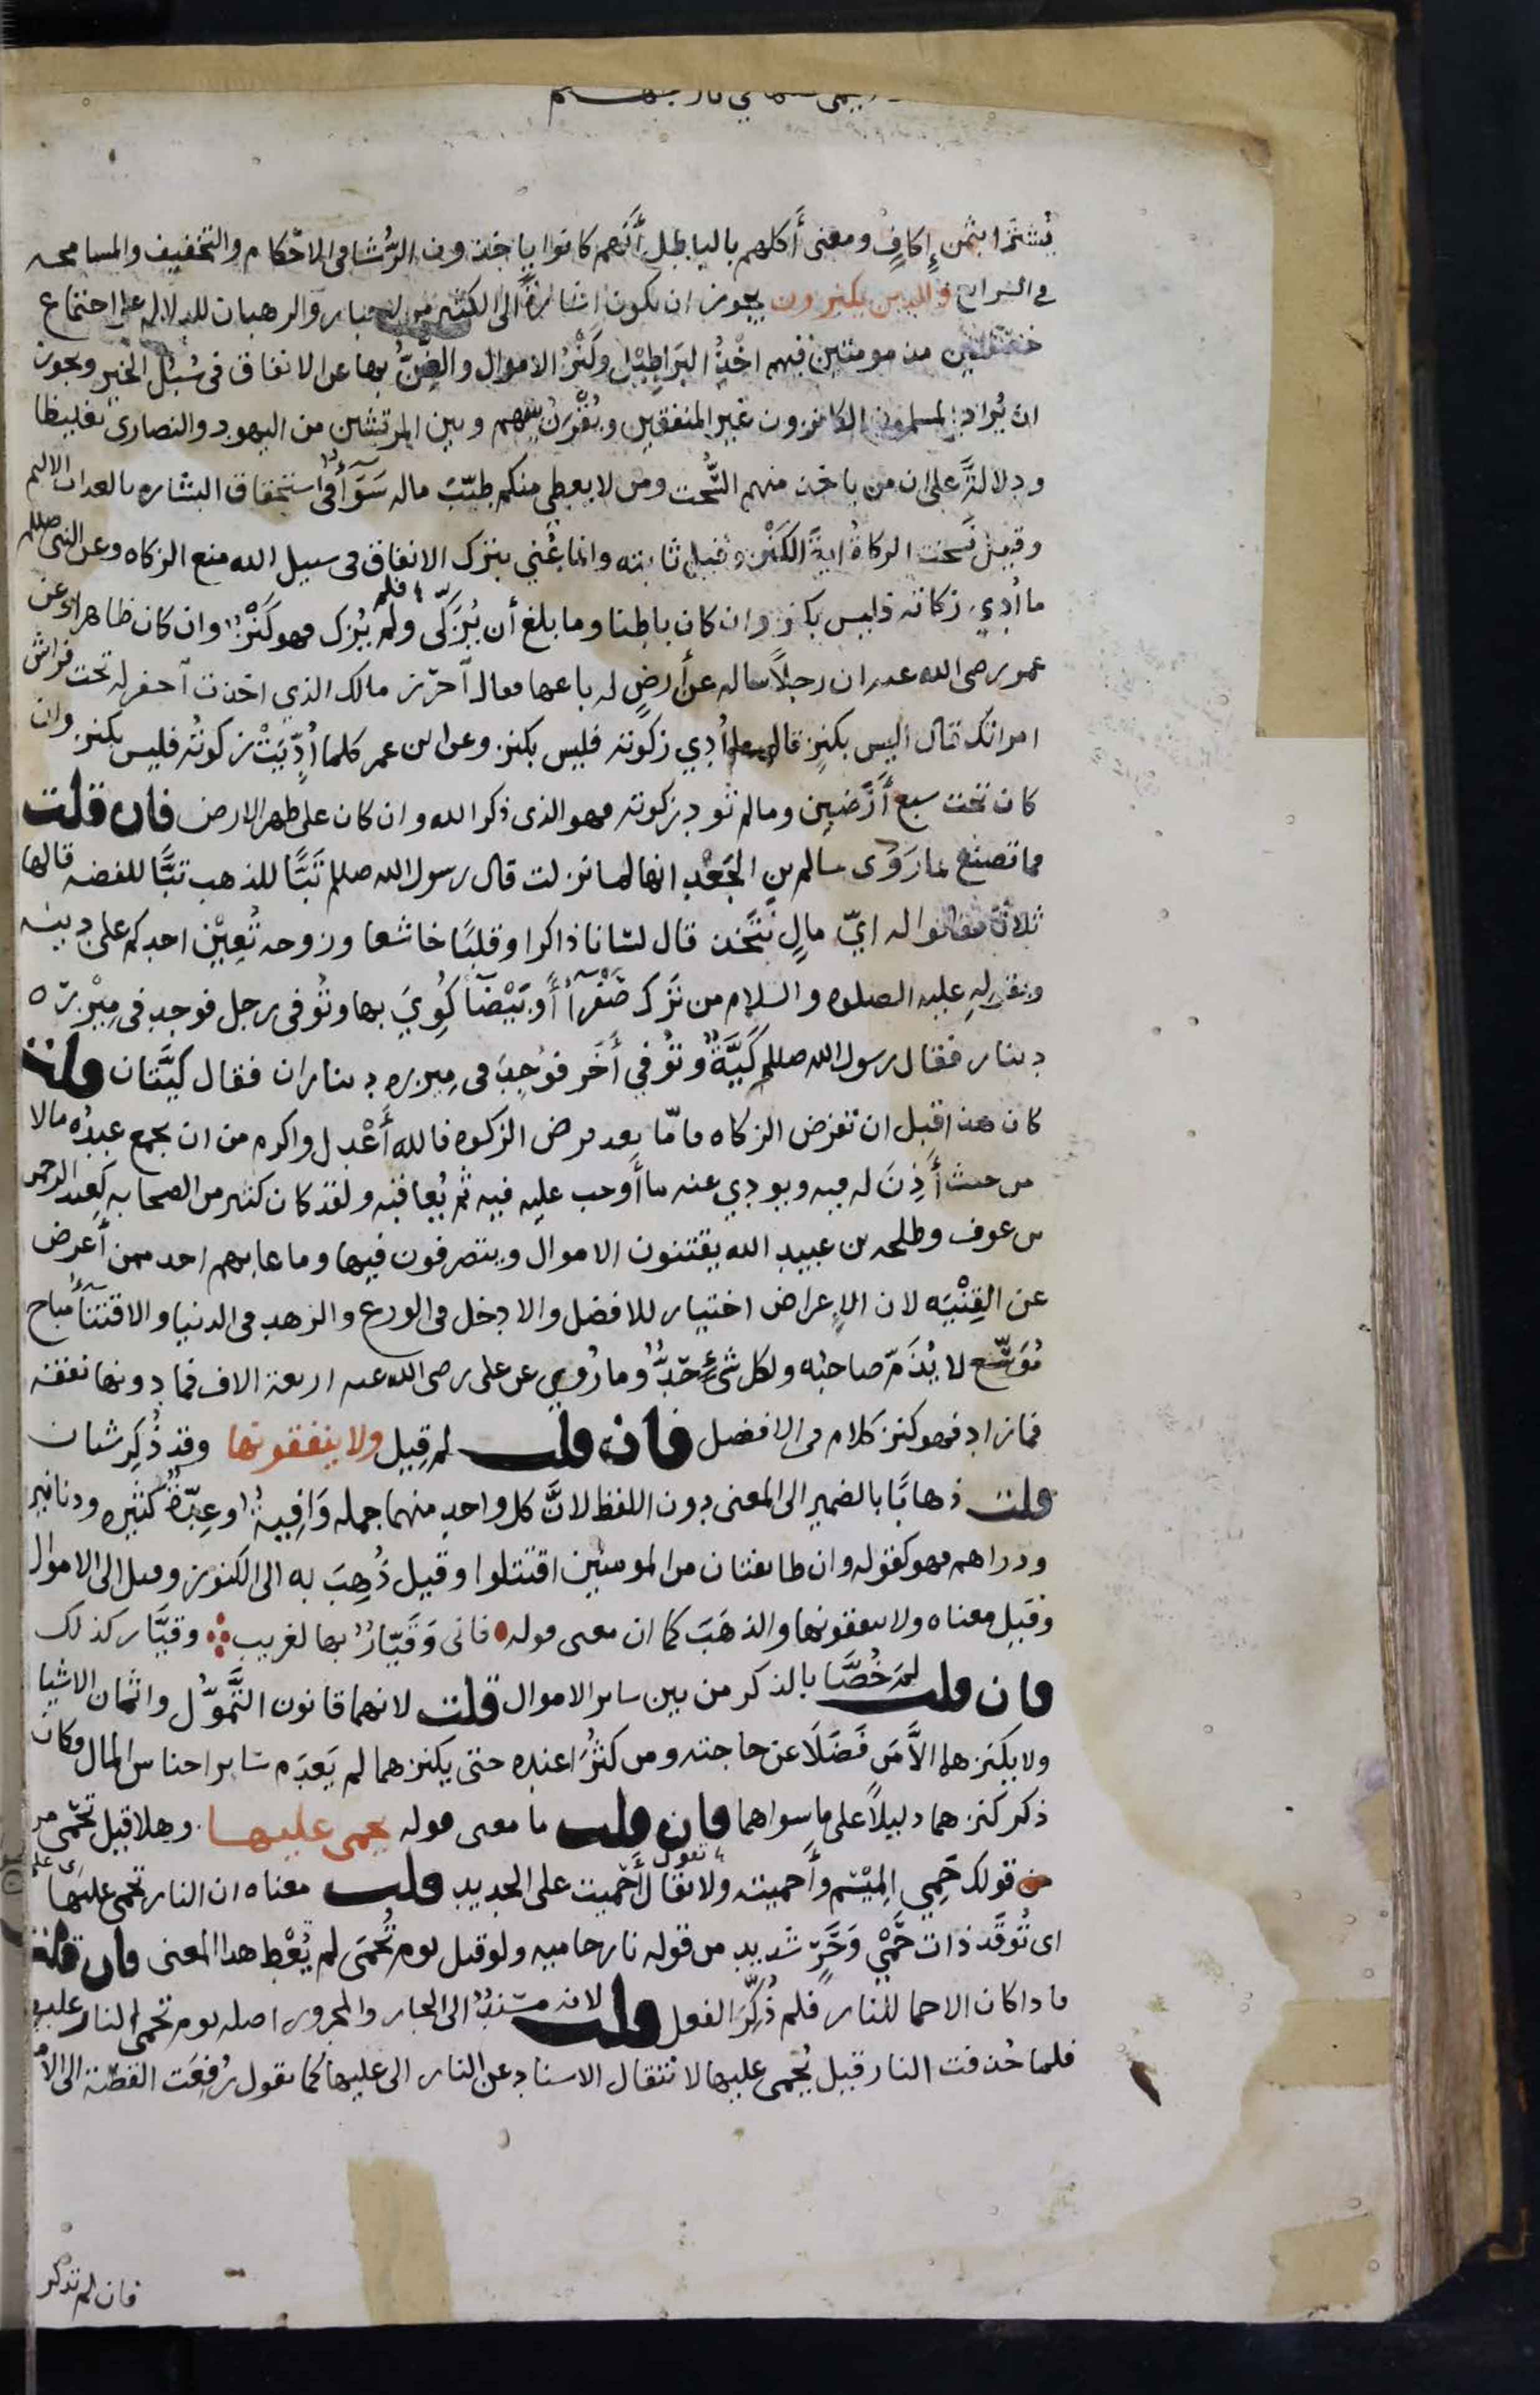 يُشترا بثمن إِكافٍ ومعنى أكلهم بالباطل أنهم كانوا ياخذون الرُّشا فى الاحكام والتخفيف والمسامحه
فى الشرايع والذين يكنزون يجوز ان يكون اشارةً الى الكثير من الاحبار والرهبان للدلاله على اجتماع
خصلتين مذمومتين فيهم اخْذُ البَراطِيْل وكَنْزُ الاموال والضِنُّ بها عن الانفاق فى سُبُل الخير ويجوز
ان يُراد المسلمون الكانزون غير المنفقين ويُقْرَنُ بينهم وبين المرتشين من اليهود والنصارى تغليظا
ودلالةً على ان من ياخذ منهم السُّحت ومن لا يعطى منكم طيّبَ ماله سَوَآءٌ فى استحقاق البشاره بالعذاب الاليم
وقيل نسخت الزكاةُ ايةَ الكَنْز وقيل ثابته وانما عُني بترك الانفاق فى سبيل الله منع الزكاه وعن النبى صللم
ما أُدي زكاته فليس بكنز وان كان باطنا وما بلغ أن يُزَكّى ولم يُزك فهو كَنْزٌ وان كان ظاهرا وعن
عمر رضى الله عنه ان رجلاً ساله عن أرضٍ له باعها فقال آحرز مالك الذي اخذت آحفر له تحت فراش
امراتك فقال أليس بكنز قال ما أُدي زكوته فليس بكنز وعن ابن عمر كلما أُدّيَتْ زكوتُه فليس بكنز وان
كان تحت سبع أَرَضين وما لم تود زكوته فهو الذى ذكر الله وان كان على ظهر الارض فان قلت
فما تصنع بما رَوَى سالم بن الجَعْد انها لما نزلت قال رسول الله صللم تَبًّا للذهب تبًّا للفضه قالها
ثلاثًا فقالوا له ايّ مالٍ نتَّخذ قال لسانا ذاكرا وقلبًا خاشعا وزوجه تُعِيْن احدكم على دينه
وبقولِهِ عليه الصلوه والسلام من تَرَك صَفْرآءَ أو بَيْضَآءَ كُوِيَ بها وتُوفى رجل فوجد فى مِيْزره
دينار فقال رسول الله صللم كَيَّةٌ وتُوفي أَخَر فوُجِدَ فى مِيزره ديناران فقال كيَّتان قلت
كان هذا قبل ان تفرض الزكاه فامّا بعد فرض الزكوه فالله أَعْدل واكرم من ان يجمع عبدُه مالا
من حيث أَذِنَ له فيه ويودي عنه ما أَوجب عليه فيه ثم يُعاقبَه ولقد كان كثير من الصحابه كعبد الرحمن
بن عوف وطلحه بن عبيد الله يقتنون الاموال ويتصرفون فيها وما عابهم احد ممن أَعرض
عن القِنْيَه لان الإِعراض اختيار للافضل والادخل فى الورع والزهد فى الدنيا والاقتنآءُ مباح
مُوَسَّع لا يُذَمّ صاحبُه ولكل شىءٍ حَدٌّ وما رُوي عن على رضى الله عنه اربعة الاف فما دونها نفقه
فما زاد فهو كنز كلام فى الافضل فان قلت لم قِيل ولا ينفقونها وقد ذُكِر شيان
قلت ذهابًا بالضمير الى المعنى دون اللفظ لانَّ كل واحدٍ منهما جمله وَافِيةٌ وعِدّةٌ كثيره ودنانير
ودراهم فهو كقوله وان طايفتان من المومنين اقتتلوا وقيل ذُهِبَ به الى الكنوز وقيل الى الاموال
وقيل معناه ولا ينفقونها والذهَبَ كما ان معنى قوله فانى وَقَيّارٌ بها لغريب وقيَّار كذلك
فان قلت لم خُصَّا بالذكر من بين ساير الاموال قلت لانهما قانون التَّمَوُّل واثمان الاشيا
ولا يكنزهما الاَّ مَن فَضَلَا عن حاجته ومن كثُرَا عنده حتى يكنزهما لم يَعدَم سَاير اجناس المال وكان
ذكر كنزهما دليلاً على ما سواهما فان قلت ما معنى قوله يحمى عليها وهلا قيل تحمى من
من قولك حَمِي المِيْسَم وأَحميته ولا تقول أَحْميت على الحديد قلت معناه ان النار تحمى عليها
اى تُوقَد ذات حَمْيٍ وَحَرٍّ شديد من قوله نار حاميه ولو قيل يوم تُحمَى لم يُعْطِ هذا المعنى فان قلت
فاذا كان الاحما للنار فلم ذُكِّرَ الفعل قلت لانه مسْنَدٌ الى الجار والمجرور اصله يوم تحمى النار عليها
فلما حُذفت النار قيل يُحمى عليها لانتقال الاسناد عن النار الى عليها كما تقول رُفِعَت القصّة الى الأ
فان لم تذكر